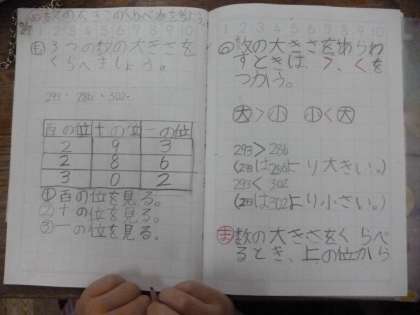 1 2 3 4 5 6 7 8 9 10
も 3つの数の大きさを
くらべましょう。
293 286 302
百の位 十の位 一の位
2 9 3
2 8 6
3 0 2
①百の位を見る。
②十の位を見る。
③一の位を見る。
1 2 3 4 5 6 7 8 9 10
数の大きさをあらわ
すときは、>、<を
つかう。
大>小 小<大
293>286
(293は286より大きい。)
293<302
(293は302より小さい。)
ま 数の大きさをくらべ
るとき、上の位から